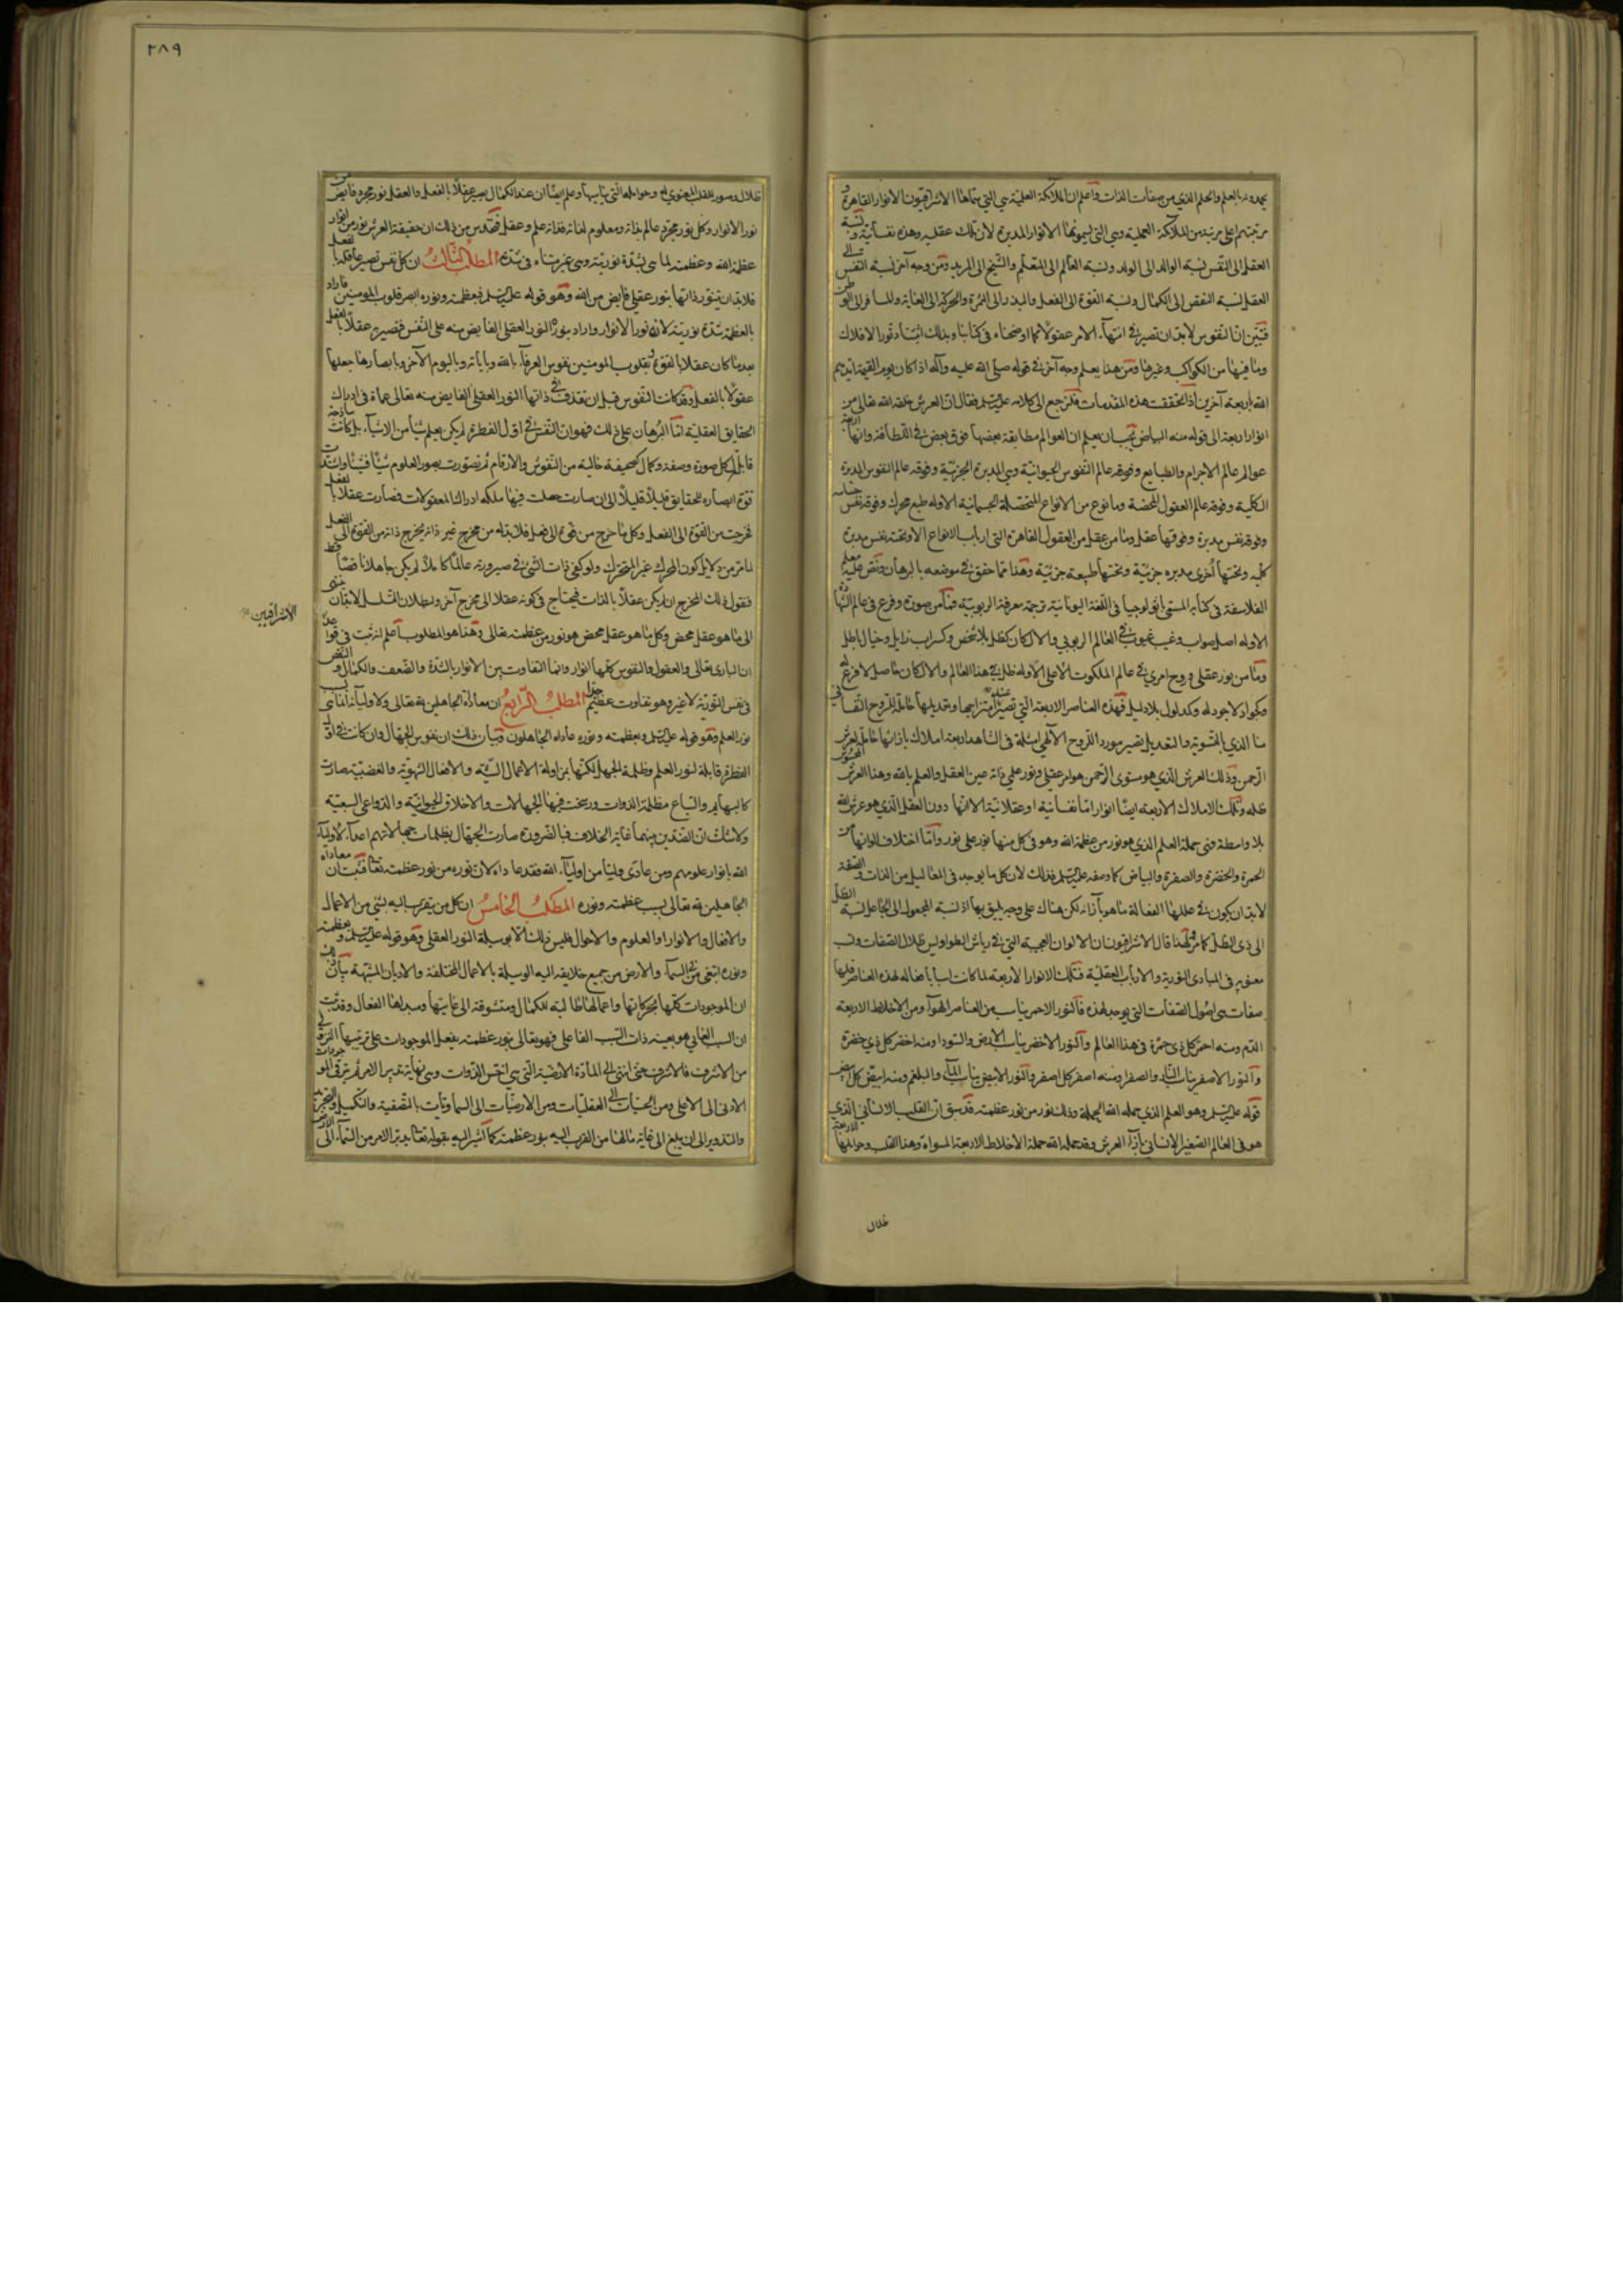 يمدونه بالعلم والحلم الذي من صفات الذات واعلم ان الملائكة العلمية هي التي سماها الاشراقيون الانوار القاهرة و
مرتبتهم اعلى مرتبة من الملائكة العملية وهي التي يسمونها الانوار المدبرة لان تلك عقلية وهذه نفسانية ونسبة
العقل الى النفس نسبة الوالد الى الولد ونسبة العالم الى المتعلم والشيخ الى المريد ومن وجه آخر نسبة النفس الى
العقل نسبة النقص الى الكمال ونسبة القوة الى الفعل والبذر الى الثمرة والحركة الى الغاية والمسافر الى الوطن
فتبين ان النفوس لابد ان تصير في انتهاء الامر عقولا كما اوضحناه في كتابنا وبذلك اثبتنا دثور الافلاك
وما فيها من الكواكب وغيرها ومن هذا يعلم وجه آخر في قوله صلى الله عليه وآله اذا كان يوم القيمة ايدهم
الله باربعة آخرين اذا تحققت هذه المقدمات فلنرجع الى كلامه عليه السلام فقال ان العرش خلقه الله تعالى من
انوار اربعة الى قوله منه البياض يجب ان يعلم ان العوالم مطابقة بعضها فوق بعض في اللطافة وانها اربعة
عوالم عالم الاجرام والطبايع وفوقه عالم النفوس الحيوانية وهي المدبرة الجزئية وفوقه عالم النفوس المدبرة
الكلية وفوقه عالم العقول المحضة وما نوع من الانواع المتحصلة الجسمانية الا وله طبع محرك وفوقه نفس حساسة
وفوقه نفس مدبرة وفوقها عقل وما من عقل من العقول القاهرة التي ارباب الانواع الا وتحته نفس مدبرة
كلية وتحتها أخرى مدبرة جزئية وتحتها طبيعة جزئية وهذا مما حقق في موضعه بالبرهان ونص عليه معلم
الفلاسفة في كتابه المسمى باثولوجيا في اللغة اليونانية ترجمة معرفة الربوبية فما من صورة وفرع في عالم الشهادة
الا وله اصل صواب وغيب في العالم الربوبي والا لكان كظل بلا شخص وكسراب زايل وخيال باطل
وما من نور عقلي وروح امري في عالم الملكوت الاعلى الا وله ظل في هذا العالم والا لكان اصلا لا فرع له
وكجواد لا جود له وكمدلول بلا دليل فهذه العناصر الاربعة التي تصير عند امتزاجها وتعديلها حاملة للروح النفساني
منا الذي بالتسوية والتعديل تصير مورد الروح الالهي امثلة في الشاهد اربعة املاك بازائها حاملة لعرش
الرحمن وذلك العرش الذي هو مستوى الرحمن هو امر عقلي ونور علمي ذاته عين العقل والعلم بالله وهذا العرش
ظله وتلك الاملاك الاربعة ايضا انوار اما نفسانية او عقلانية الا انها دون العقل الذي هو عرش الله
بلا واسطة فهي حملة العلم الذي هو نور من عظمة الله وهو في كل منها نور على نور واما اختلاف الوانها من
الحمرة والخضرة والصفرة والبياض كما وصفه عليه السلم فذلك لان كل ما يوجد في المعاليل من الذات والصفة
لابد ان يكون في عللها الفعالة ما هو بازائه لكن هناك على وجه يليق بها اذ نسبة المجعول الى الجاعل نسبة الظل
الى ذي الظل كما مر ولهذا قال الاشراقيون ان الالوان العجيبة التي في رياش الطواويس ظلال لصفات ونسب
معنوية في المبادي النورية والارباب العقلية فتلك الانوار الاربعة لما كانت اسبابا فعالة لهذه العناصر فلها
صفات هي اصول الصفات التي يوجد لهذه فالنور الاحمر يناسب من العناصر الهواء ومن الاخلاط الاربعة
الدم ومنه احمر كل ذي حمرة في هذا العالم والنور الاخضر يناسب الارض والسودا ومنه اخضر كل ذي خضرة
والنور الاصفر يناسب النار والصفرا ومنه اصفر كل اصفر والنور الابيض يناسب الماء والبلغم ومنه ابيض كل ابيض
قوله عليه السلم وهو العلم الذي حمله الله الحملة وذلك نور من نور عظمته قد سبق ان القلب الانساني الذي
هو في العالم الصغير الانساني بازاء العرش وقد حمله الله حملة الاخلاط الاربعة المسواة وهذا القلب وحواملها الاربعة
ظلال
٢٨٩
ظلال وصور للقلب المعنوي وحوامله التي يناسبها وعلم ايضا ان عند الكمال يصير عقلا بالفعل والعقل نور مجرد فايض من
نور الانوار وكل نور مجرد عالم بذاته ومعلوم لذاته فذاته علم وعقل فقد تبين من ذلك ان حقيقة العرش نور من انوار
عظمة الله وعظمته لما هي شدة نوريته وهي غير متناه في شدة المطلب الثالث ان كل نفس تصير عاقلة بالفعل
فلابد ان يتنور ذاتها بنور عقلي فايض من الله وهو قوله عليه السلم فبعظمته ونوره ابصر قلوب المومنين فاراد
بالعظمة شدة نوريته لانه نور الانوار واراد بنوره النور العقلي الفايض منه على النفس فتصير عقلا بالفعل
بعد ما كان عقلا بالقوة وبقلوب المومنين نفوس العرفاء بالله وباياته وباليوم الآخر وبابصارها جعلها
عقولا بالفعل وقد كانت النفوس قبل ان يقذف في ذاتها النور العقلي الفايض منه تعالى عماة في ادراك
الحقايق العقلية اما البرهان على ذلك فهو ان النفس في اول الفطرة لم يكن يعلم شيأ من الاشياء بل كانت ساذجة
قابلة لكل صورة وصفة وكمال كصحيفة خالية من النقوش والارقام ثم تصورت بصور العلوم شيئا فشيئا واشتدت
قوة ابصاره للحقايق قليلا قليلا الى ان صارت حصلت فيها ملكة ادراك المعقولات فصارت عقلا بالفعل
فخرجت من القوة الى الفعل وكل ما خرج من قوة الى فعل فلا بد له من مخرج غير ذاته يخرج ذاته من القوة الى الفعل
لما مر من دلايل كون المحرك غير المتحرك ولو كفى ذات الشيء في صيرورته عالما كاملا لم يكن جاهلا ناقصا قط
فنقول ذلك المخرج ان لم يكن عقلا بالذات فيحتاج في كونه عقلا الى مخرج آخر ولبطلان التسلسل لابد ان ينتهي
الى ما هو عقل محض وكل ما هو عقل محض هو نور من عظمته تعالى وهذا هو المطلوب اعلم انه ثبت في قواعد
الاشراقيين
ان الباري تعالى والعقول والنفوس كلها انوار وانما التفاوت بين الانوار بالشدة والضعف والكمال والنقص
في نفس النورية لا غير وهو تفاوت عظيم المطلب الرابع ان معاداة الجاهلين له تعالى ولاوليائه انما هي بسبب
نور العلم وهو قوله عليه السلم وبعظمته ونوره عاداه الجاهلون وبيان ذلك ان نفوس الجهال وان كانت في اول
الفطرة قابلة لنور العلم وظلمة الجهل لكنها بمزاولة الاعمال السيئة والافعال الشهوية والغضبية صارت
كالبهايم والسباع مظلمة الذوات ورسخت فيها الجهالات والاخلاق الحيوانية والدواعي السبعية
ولا شك ان الضدين بينهما غاية الخلاف فبالضرورة صارت الجهال بظلمات جهالاتهم اعداء لاولياء
الله بانوار علومهم ومن عادى وليا من اولياء الله فقد عاداه لان نوره من نور عظمته تعالى فثبت ان معاداة
الجاهلين له تعالى بسبب عظمته ونوره المطلب الخامس ان كل من يتقرب اليه بشيء من الاعمال
والافعال والانوار او العلوم والاحوال فليس ذلك الا بوسيلة النور العقلي وهو قوله عليه السلم وبعظمته
ونوره ابتغى من في السماء والارض من جميع خلايقه اليه الوسيلة بالاعمال المختلفة والاديان المشتبهة بيان ذلك
ان الموجودات كلها بحركاتها واعمالها طالبة للكمال ومتشوقة الى غايتها ومبدئها الفعال وقد ثبت
ان السبب الغايي هو بعينه ذات السبب الفاعلي فهو تعالى بنور عظمته يفعل الموجودات على ترتيبها النزولي
من الاشرف فالاشرف حتى انتهى الى المادة الارضية التي هي اخس الذوات وهي نهاية تدبير الامر ثم يترقى الموجودات من
الادنى الى الاعلى ومن الحسيات الى العقليات ومن الارضيات الى السماويات بالتصفية والتكميل والتجريد
والتنوير الى ان يبلغ الى غاية مالها من القرب اليه بنور عظمته كما اشير اليه بقوله تعالى يدبر الامر من السماء الى الارض